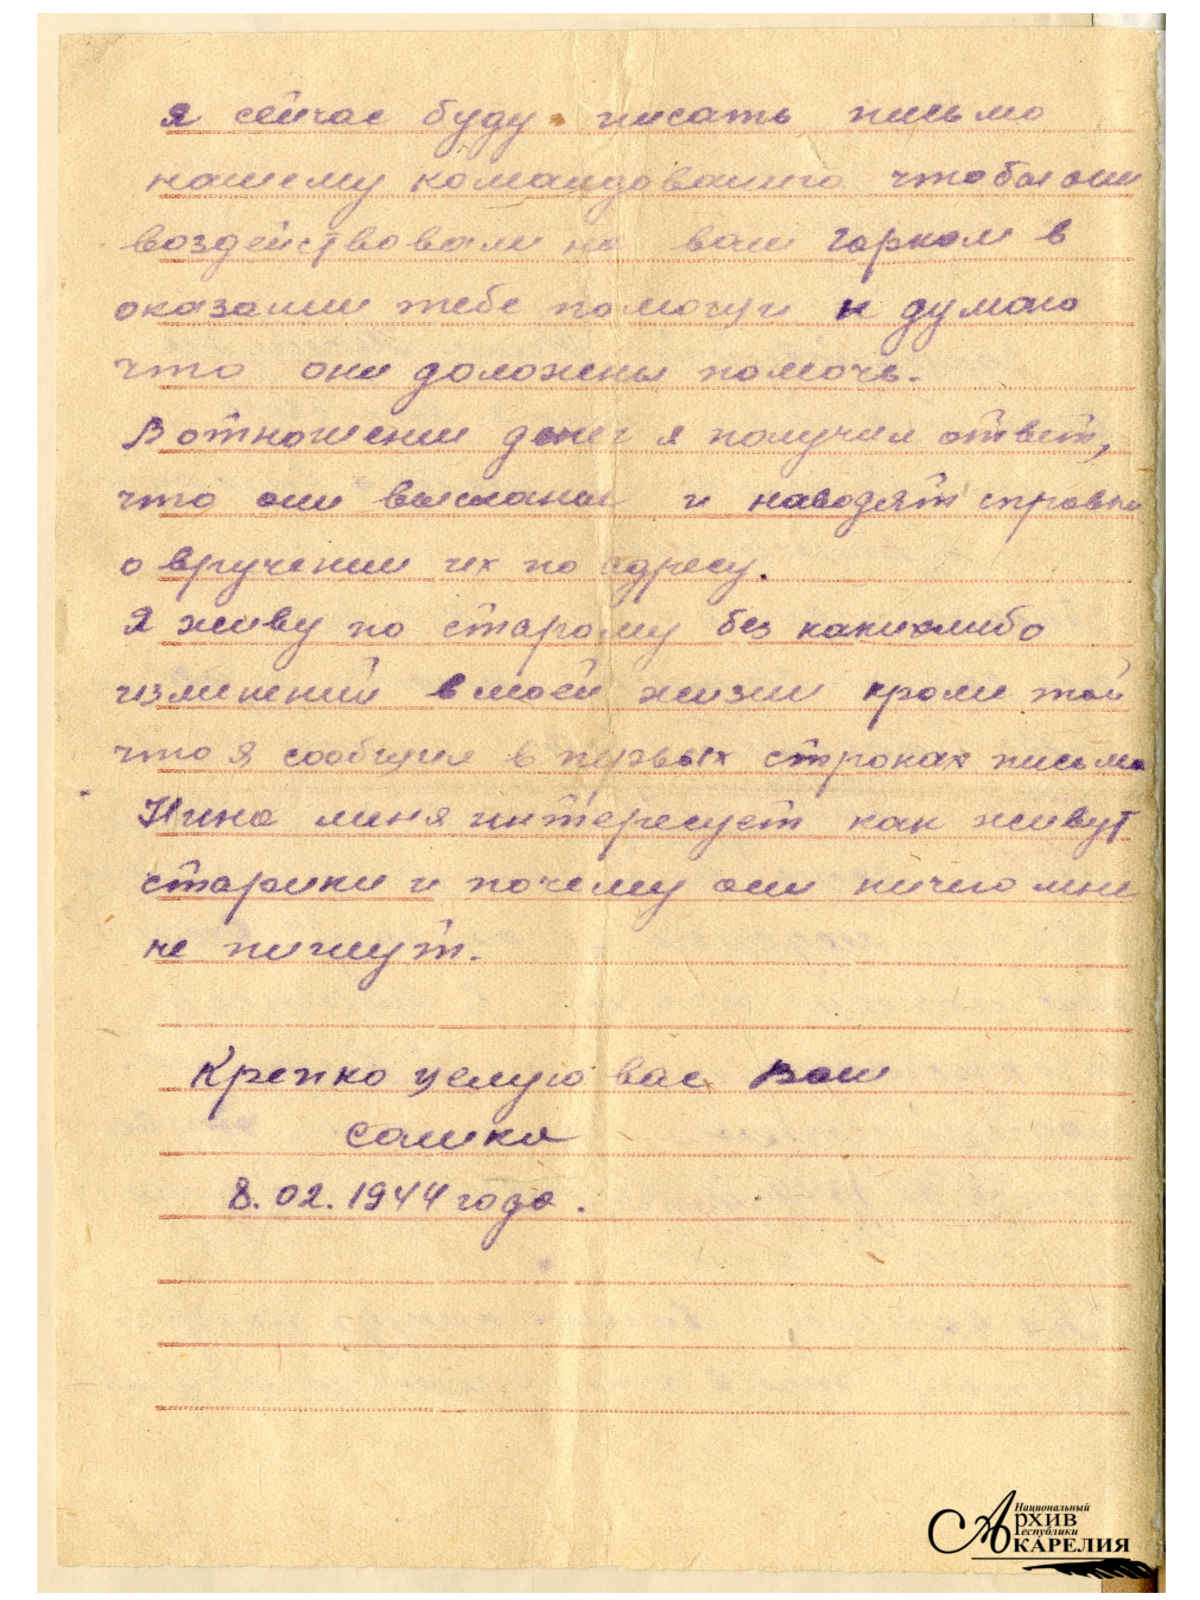 я сейчас буду писать письмо
нашему командованию чтобы они
воздействовали на ваш горком в
оказании тебе помощи я думаю
что они должны помочь.
В отношении денег я получил ответ,
что они высланы и наводят справки
о вручении их по адресу.
Я живу по старому без каких либо
изменений в моей жизни кроме той
что я сообщил в первых строках письма
Нина меня интересует как живут
старики и почему они ничего мне
не пишут.
Крепко целую вас Ваш
Сашка
8.02.1944 года.
Национальный
Архив
Республики
КАРЕЛИЯ